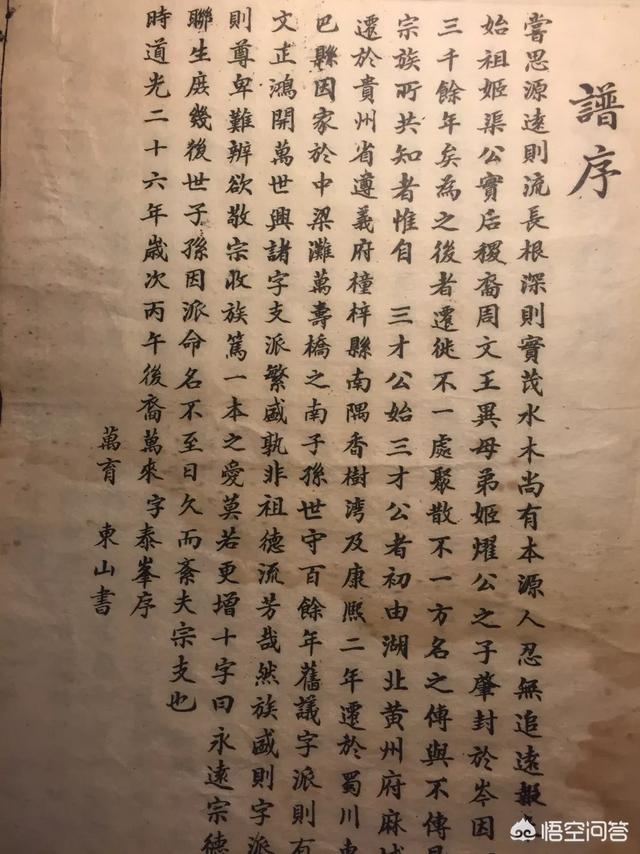 譜序
嘗思源遠則流長根深則實茂水木尚有本源人忍無追遠報
始祖姬渠公實后稷裔周文王異母弟姬燿公之子肇封於岑因
三千餘年矣為之後者遷徙不一處聚散不一方名之傳與不傳
宗族所共知者惟自 三才公始三才公者初由湖北黃州府麻城
遷於貴州省遵義府橦梓縣南隅香樹湾及康熙二年遷於蜀川東
巴縣因家於中梁灘萬壽橋之南子孫世守百餘年舊議字派則有
文正鴻開萬世興諸字支派繁盛孰非祖德流芳哉然族盛則字派
則尊卑難辨欲敬宗收族篤一本之愛莫若更增十字曰永遠宗德
聯生庶幾後世子孫因派命名不至日久而紊夫宗支也
時道光二十六年歲次丙午後裔萬來字泰峯序
萬育 東山書
悟空问答